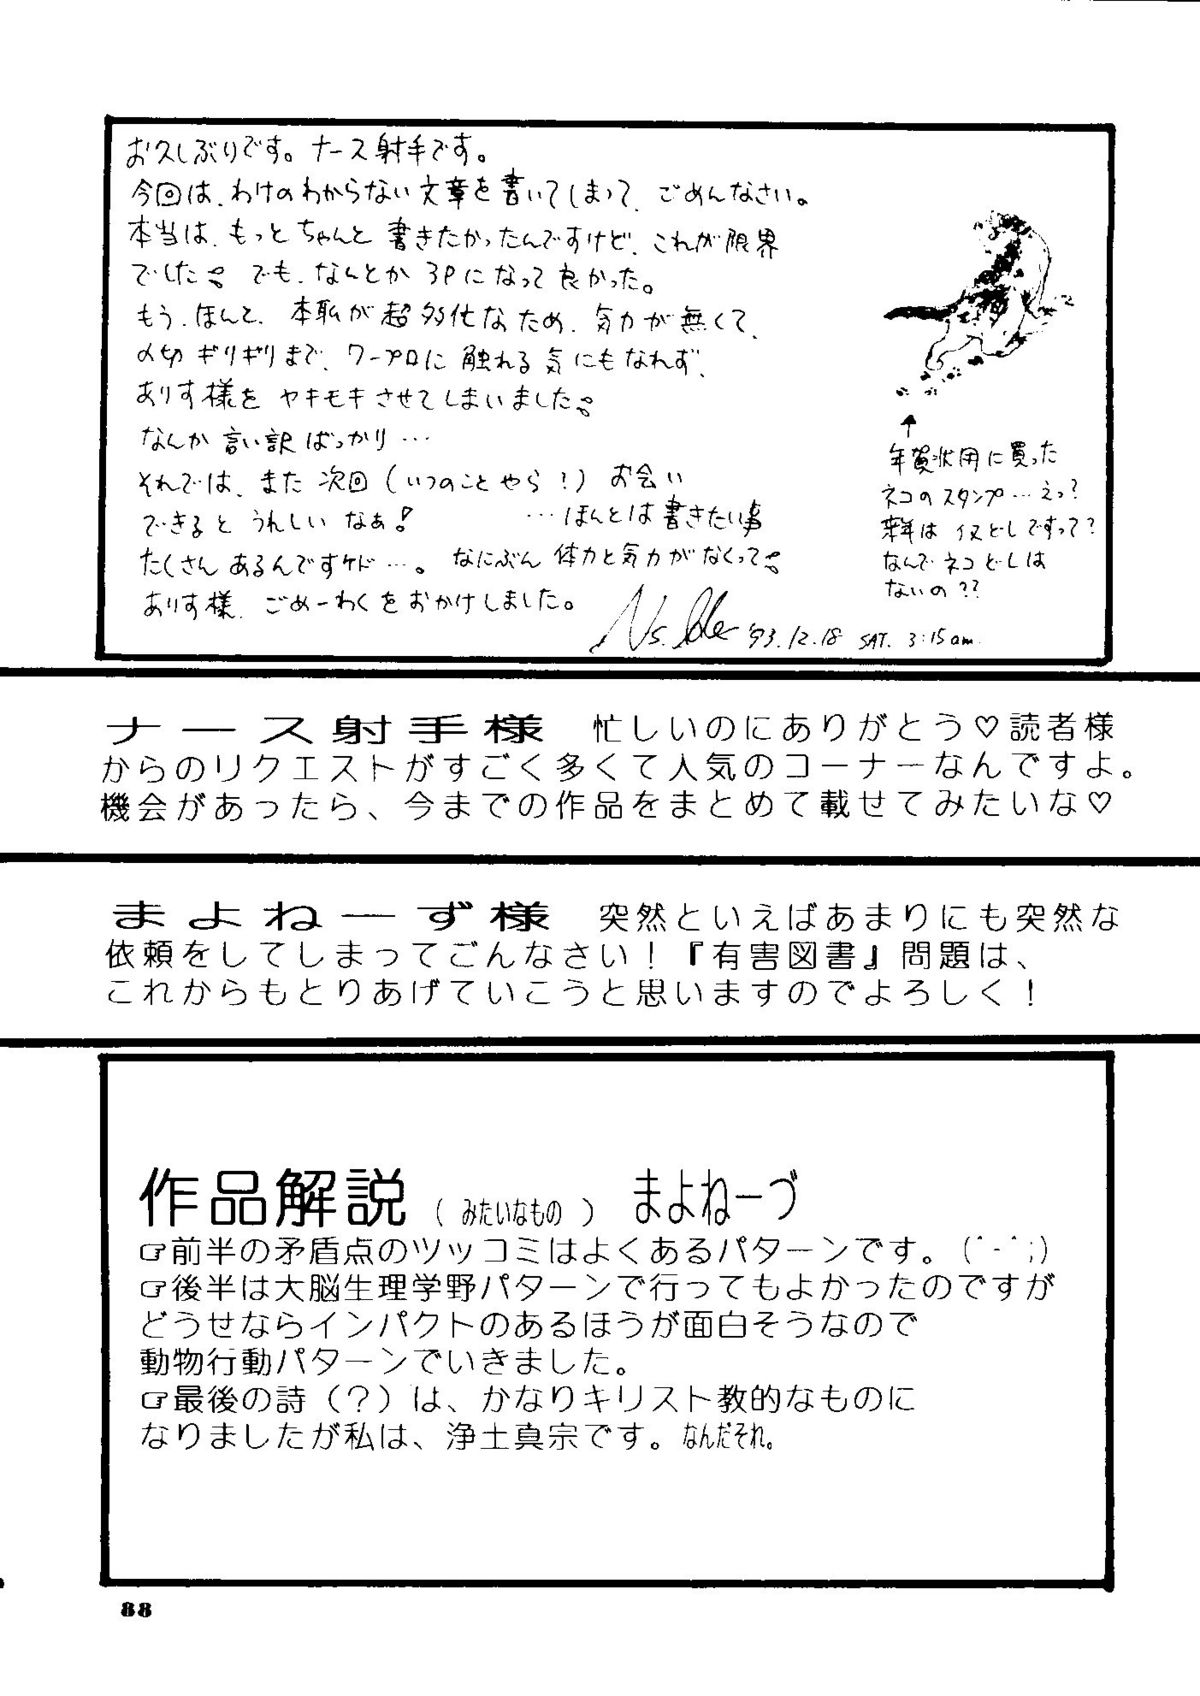 お久しぶりです。ナース射手です。
今回は、わけのわからない文章を書いてしまって、ごめんなさい。
本当は、もっとちゃんと書きたかったんですけど、これが限界
でした。でも、なんとか3Pになって良かった。
もう、ほんと、本職が超多忙なため、気力が無くて、
〆切ギリギリまで、ワープロに触れる気にもなれず、
ありす様を ヤキモキさせてしまいました。
なんか言い訳ばっかり…
それでは、また次回(いつのことやら!)お会い
できるとうれしいなぁ!　…ほんとは書きたい事
たくさんあるんですケド…。なにぶん体力と気力がなくって。
ありす様、ごめーわくをおかけしました。
'93.12.18 SAT. 3:15am.
↑
年賀状用に買った
ネコのスタンプ…えっ?
来年はイヌどしですって?
なんでネコどしは
ないの??
ナース射手様 忙しいのにありがとう♡読者様
からのリクエストがすごく多くて人気のコーナーなんですよ。
機会があったら、今までの作品をまとめて載せてみたいな♡
まよねーず様 突然といえばあまりにも突然な
依頼をしてしまってごんなさい!『有害図書』問題は、
これからもとりあげていこうと思いますのでよろしく!
作品解説(みたいなもの) まよねーづ
☞前半の矛盾点のツッコミはよくあるパターンです。(^-^;)
☞後半は大脳生理学野パターンで行ってもよかったのですが
どうせならインパクトのあるほうが面白そうなので
動物行動パターンでいきました。
☞最後の詩(?)は、かなりキリスト教的なものに
なりましたが私は、浄土真宗です。なんだそれ。
88